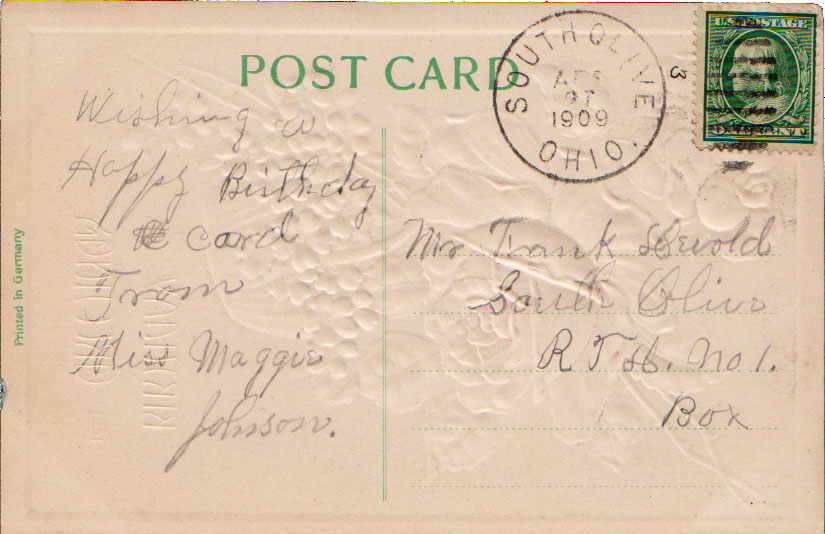 POST CARD
SOUTH OLIVE
27
1909
OHIO.
3
U.S. POSTAGE
ONE CENT
Wishing a
Happy Birthday
card
From
Miss Maggie
Johnson.
Mr Frank
South Olive
No 1.
Box
Printed in Germany